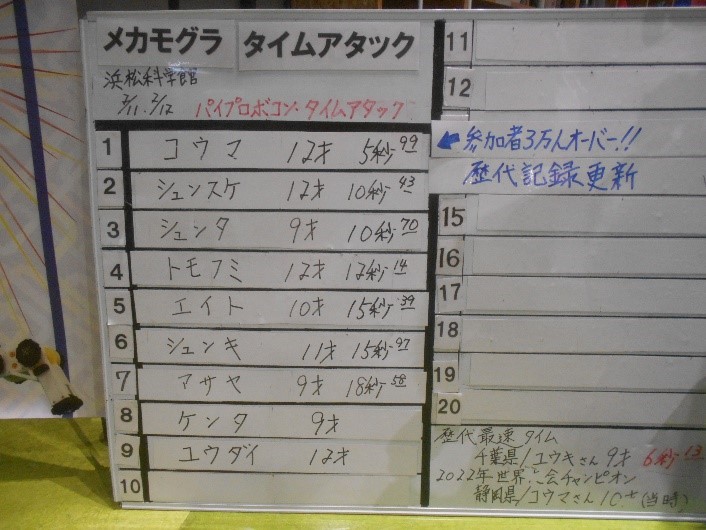 メカモグラ タイムアタック
浜松科学館
2/11.2/12 パイプロボコン・タイムアタック
1 コウマ 12才 5秒99
2 シュンスケ 12才 10秒43
3 シュンタ 9才 10秒70
4 トモフミ 12才 12秒14
5 エイト 10才 15秒39
6 シュンキ 11才 15秒97
7 アサヤ 9才 18秒58
8 ケンタ 9才
9 ユウダイ 12才
10
11
12
参加者3万人オーバー!!
歴代記録更新
15
16
17
18
19
20
歴代最速タイム
千葉県/ユウキさん9才 6秒13
2022年世界大会チャンピオン
静岡県/コウマさん10才(当時)